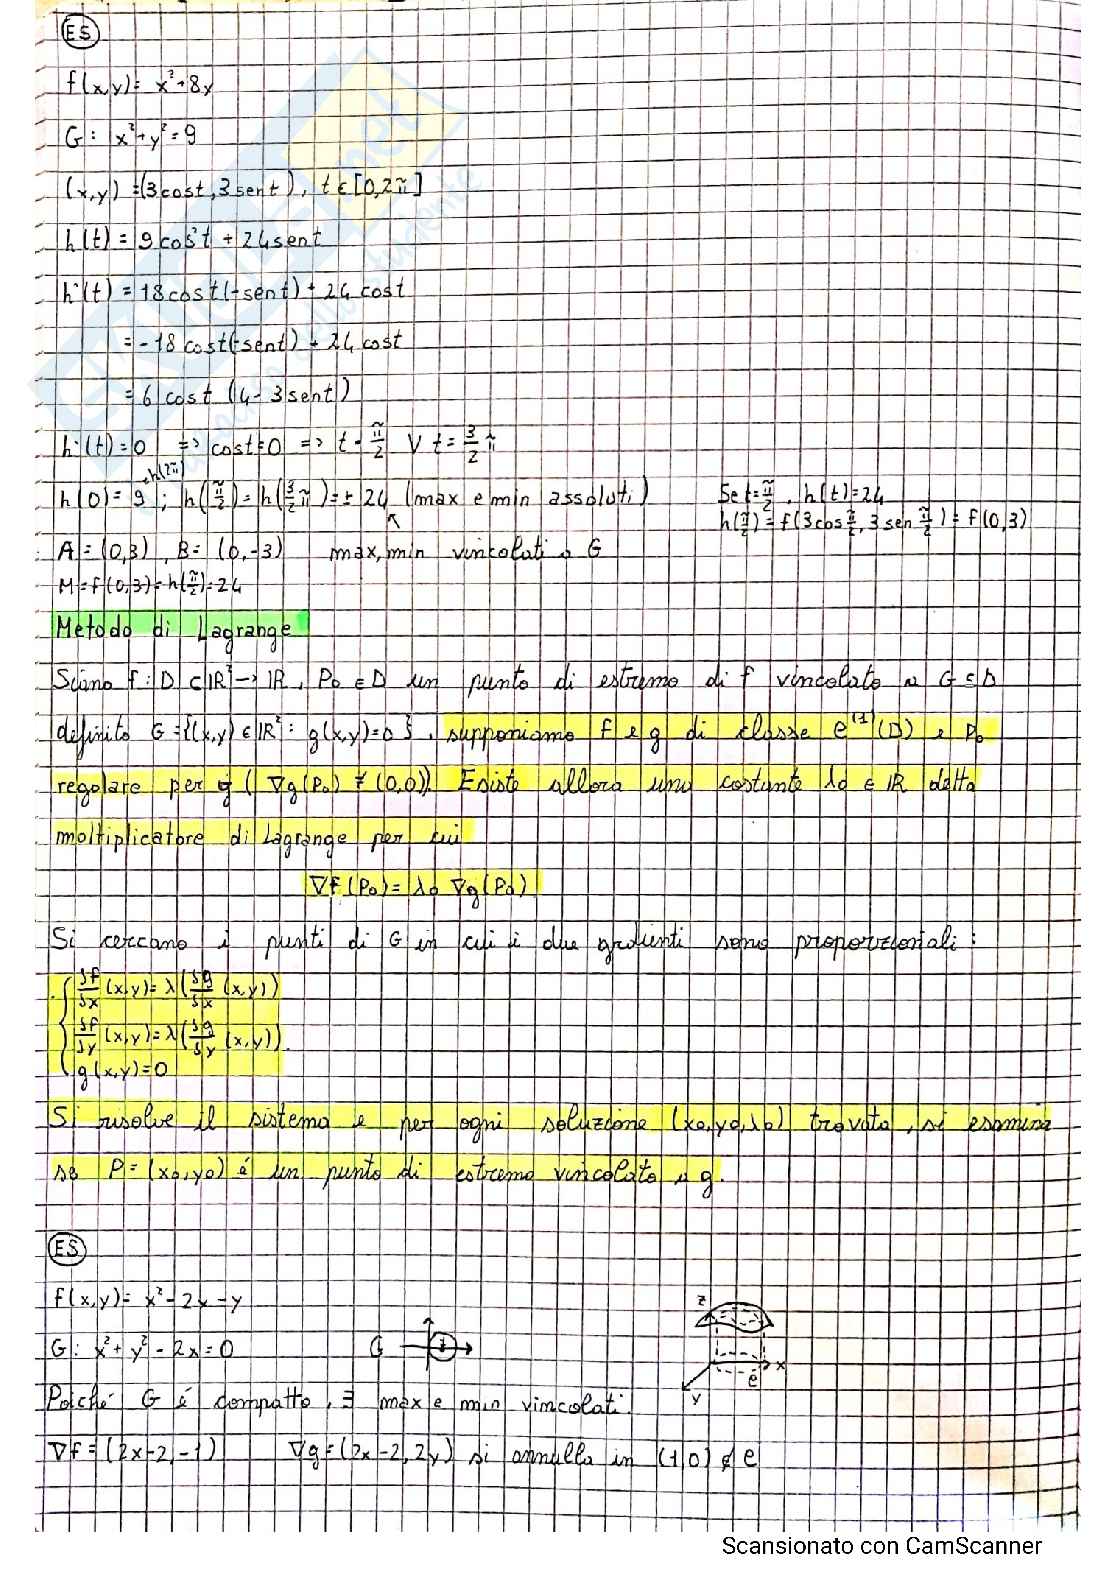 ES
f(x,y)= x²+8y
G: x²+y²=9
(x,y) =(3cost,3sent), t∈[0,2π]
h(t) = 9cos²t + 24sent
h'(t) = 18cost(-sent) + 24cost
= -18cost(-sent) + 24cost
= 6cost (4-3sent)
h'(t)=0 => cost=0 => t=π/2 V t=3/2π
=h(2π)
h(0)=9 ; h(π/2)=h(3/2π)=±24 (max e min assoluti) Se t=π/2, h(t)=24
h(π/2)=f(3cosπ/2, 3senπ/2)=f(0,3)
A=(0,3), B=(0,-3) max,min vincolati a G
M=f(0,3)=h(π/2)=24
Metodo di Lagrange
Siano f:D⊂ℝ²→ℝ, P₀∈D un punto di estremo di f vincolato a G⊆D
definito G={(x,y)∈ℝ²: g(x,y)=0}, supponiamo f e g di classe C⁽¹⁾(D) e P₀
regolare per g (∇g(P₀)≠(0,0)). Esiste allora una costante λ₀∈ℝ detta
moltiplicatore di Lagrange per cui
∇f(P₀)=λ₀∇g(P₀)
Si cercano i punti di G in cui i due gradienti sono proporzionali:
δf/δx (x,y)=λ(δg/δx (x,y))
δf/δy (x,y)=λ(δg/δy (x,y))
g(x,y)=0
Si risolve il sistema e per ogni soluzione (x₀,y₀,λ₀) trovata, si esamina
se P=(x₀,y₀) é un punto di estremo vincolato a g.
ES
f(x,y)= x²-2x-y
z
G: x²+y²-2x=0 G
x
e
y
Poiché G é compatto, ∃ max e min vincolati.
∇f=(2x-2,-1) ∇g=(2x-2,2y) si annulla in (1,0)∉e
Scansionato con CamScanner